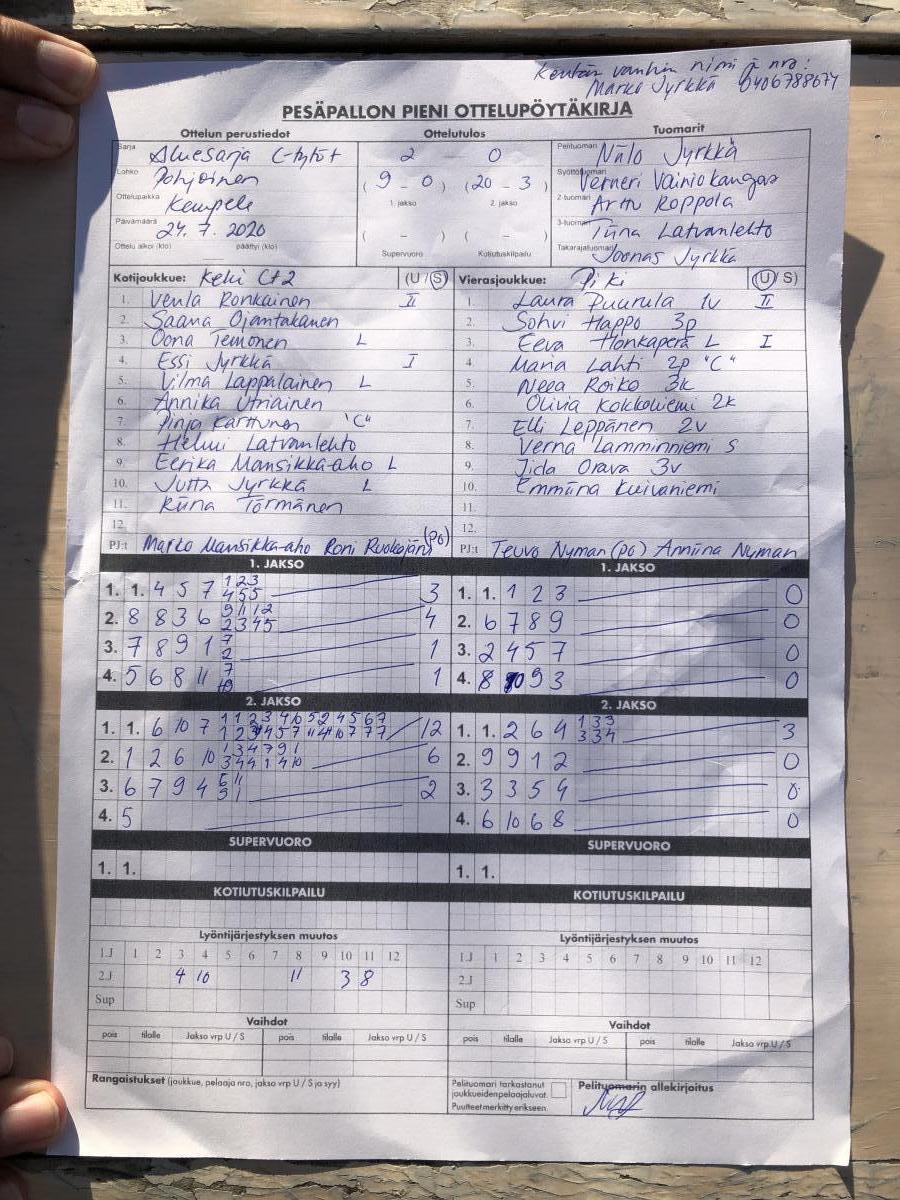 Kentän vanhin nimi ja nro:
Marko Jyrkkä 0406788674
PESÄPALLON PIENI OTTELUPÖYTÄKIRJA
Ottelun perustiedot Ottelutulos Tuomarit
Sarja Aluesarja C-tytöt 2 0 Pelituomari Niilo Jyrkkä
Lohko Pohjoinen (9 - 0) (20 - 3) Syöttötuomari Verneri Vainiokangas
Ottelupaikka Kempele 1. jakso 2. jakso 2-tuomari Arttu Roppola
Päivämäärä 24.7.2020 ( - ) ( - ) 3-tuomari Tiina Latvanlehto
Ottelu alkoi (klo) päättyi (klo) Supervuoro Kotiutuskilpailu Takarajatuomari Joonas Jyrkkä
Kotijoukkue: Keki C+2 (U / S) Vierasjoukkue: PiKi (U / S)
1. Venla Ronkainen II 1. Laura Puurula 1v II
2. Saana Ojantakanen 2. Sohvi Happo 3p
3. Oona Temonen L 3. Eeva Honkaperä L I
4. Essi Jyrkkä I 4. Maria Lahti 2p "C"
5. Vilma Lappalainen L 5. Neea Roiko 3k
6. Annika Utriainen 6. Olivia Kokkoniemi 2k
7. Pinja Karttunen "C" 7. Elli Leppänen 2v
8. Helmi Latvanlehto 8. Verna Lamminniemi S
9. Eerika Mansikka-aho L 9. Iida Orava 3v
10. Jutta Jyrkkä L 10. Emmiina Kuivaniemi
11. Riina Törmänen 11.
12. 12.
PJ:t Marko Mansikka-aho Roni Ruokojärvi (po) PJ:t Teuvo Nyman (po) Anniina Nyman
1. JAKSO 1. JAKSO
1. 1. 4 5 7 1 2 3 3 1. 1. 1 2 3 0
4 5 5
2. 8 8 3 6 9 11 12 4 2. 6 7 8 9 0
2 3 4 5
3. 7 8 9 1 7 1 3. 2 4 5 7 0
2
4. 5 6 8 11 7 1 4. 8 10 9 3 0
10
2. JAKSO 2. JAKSO
1. 1. 6 10 7 12 1. 1. 2 6 4 1 3 3 3
3 3 4
2. 1 2 6 10 1 3 4 7 9 1 6 2. 9 9 1 2 0
3 4 4 1 4 10
3. 6 7 9 4 2 3. 3 3 5 4 0
4. 5 4. 6 10 6 8 0
SUPERVUORO SUPERVUORO
1. 1. 1. 1.
KOTIUTUSKILPAILU KOTIUTUSKILPAILU
Lyöntijärjestyksen muutos Lyöntijärjestyksen muutos
1.J 1 2 3 4 5 6 7 8 9 10 11 12 1.J 1 2 3 4 5 6 7 8 9 10 11 12
2.J 4 10 11 3 8 2.J
Sup Sup
Vaihdot Vaihdot
pois tilalle Jakso vrp U / S pois tilalle Jakso vrp U / S pois tilalle Jakso vrp U / S pois tilalle Jakso vrp U / S
Rangaistukset (joukkue, pelaaja nro, jakso vrp U / S ja syy) Pelituomari tarkastanut Pelituomarin allekirjoitus
joukkueiden pelaajaluvat.
Puutteet merkitty erikseen.